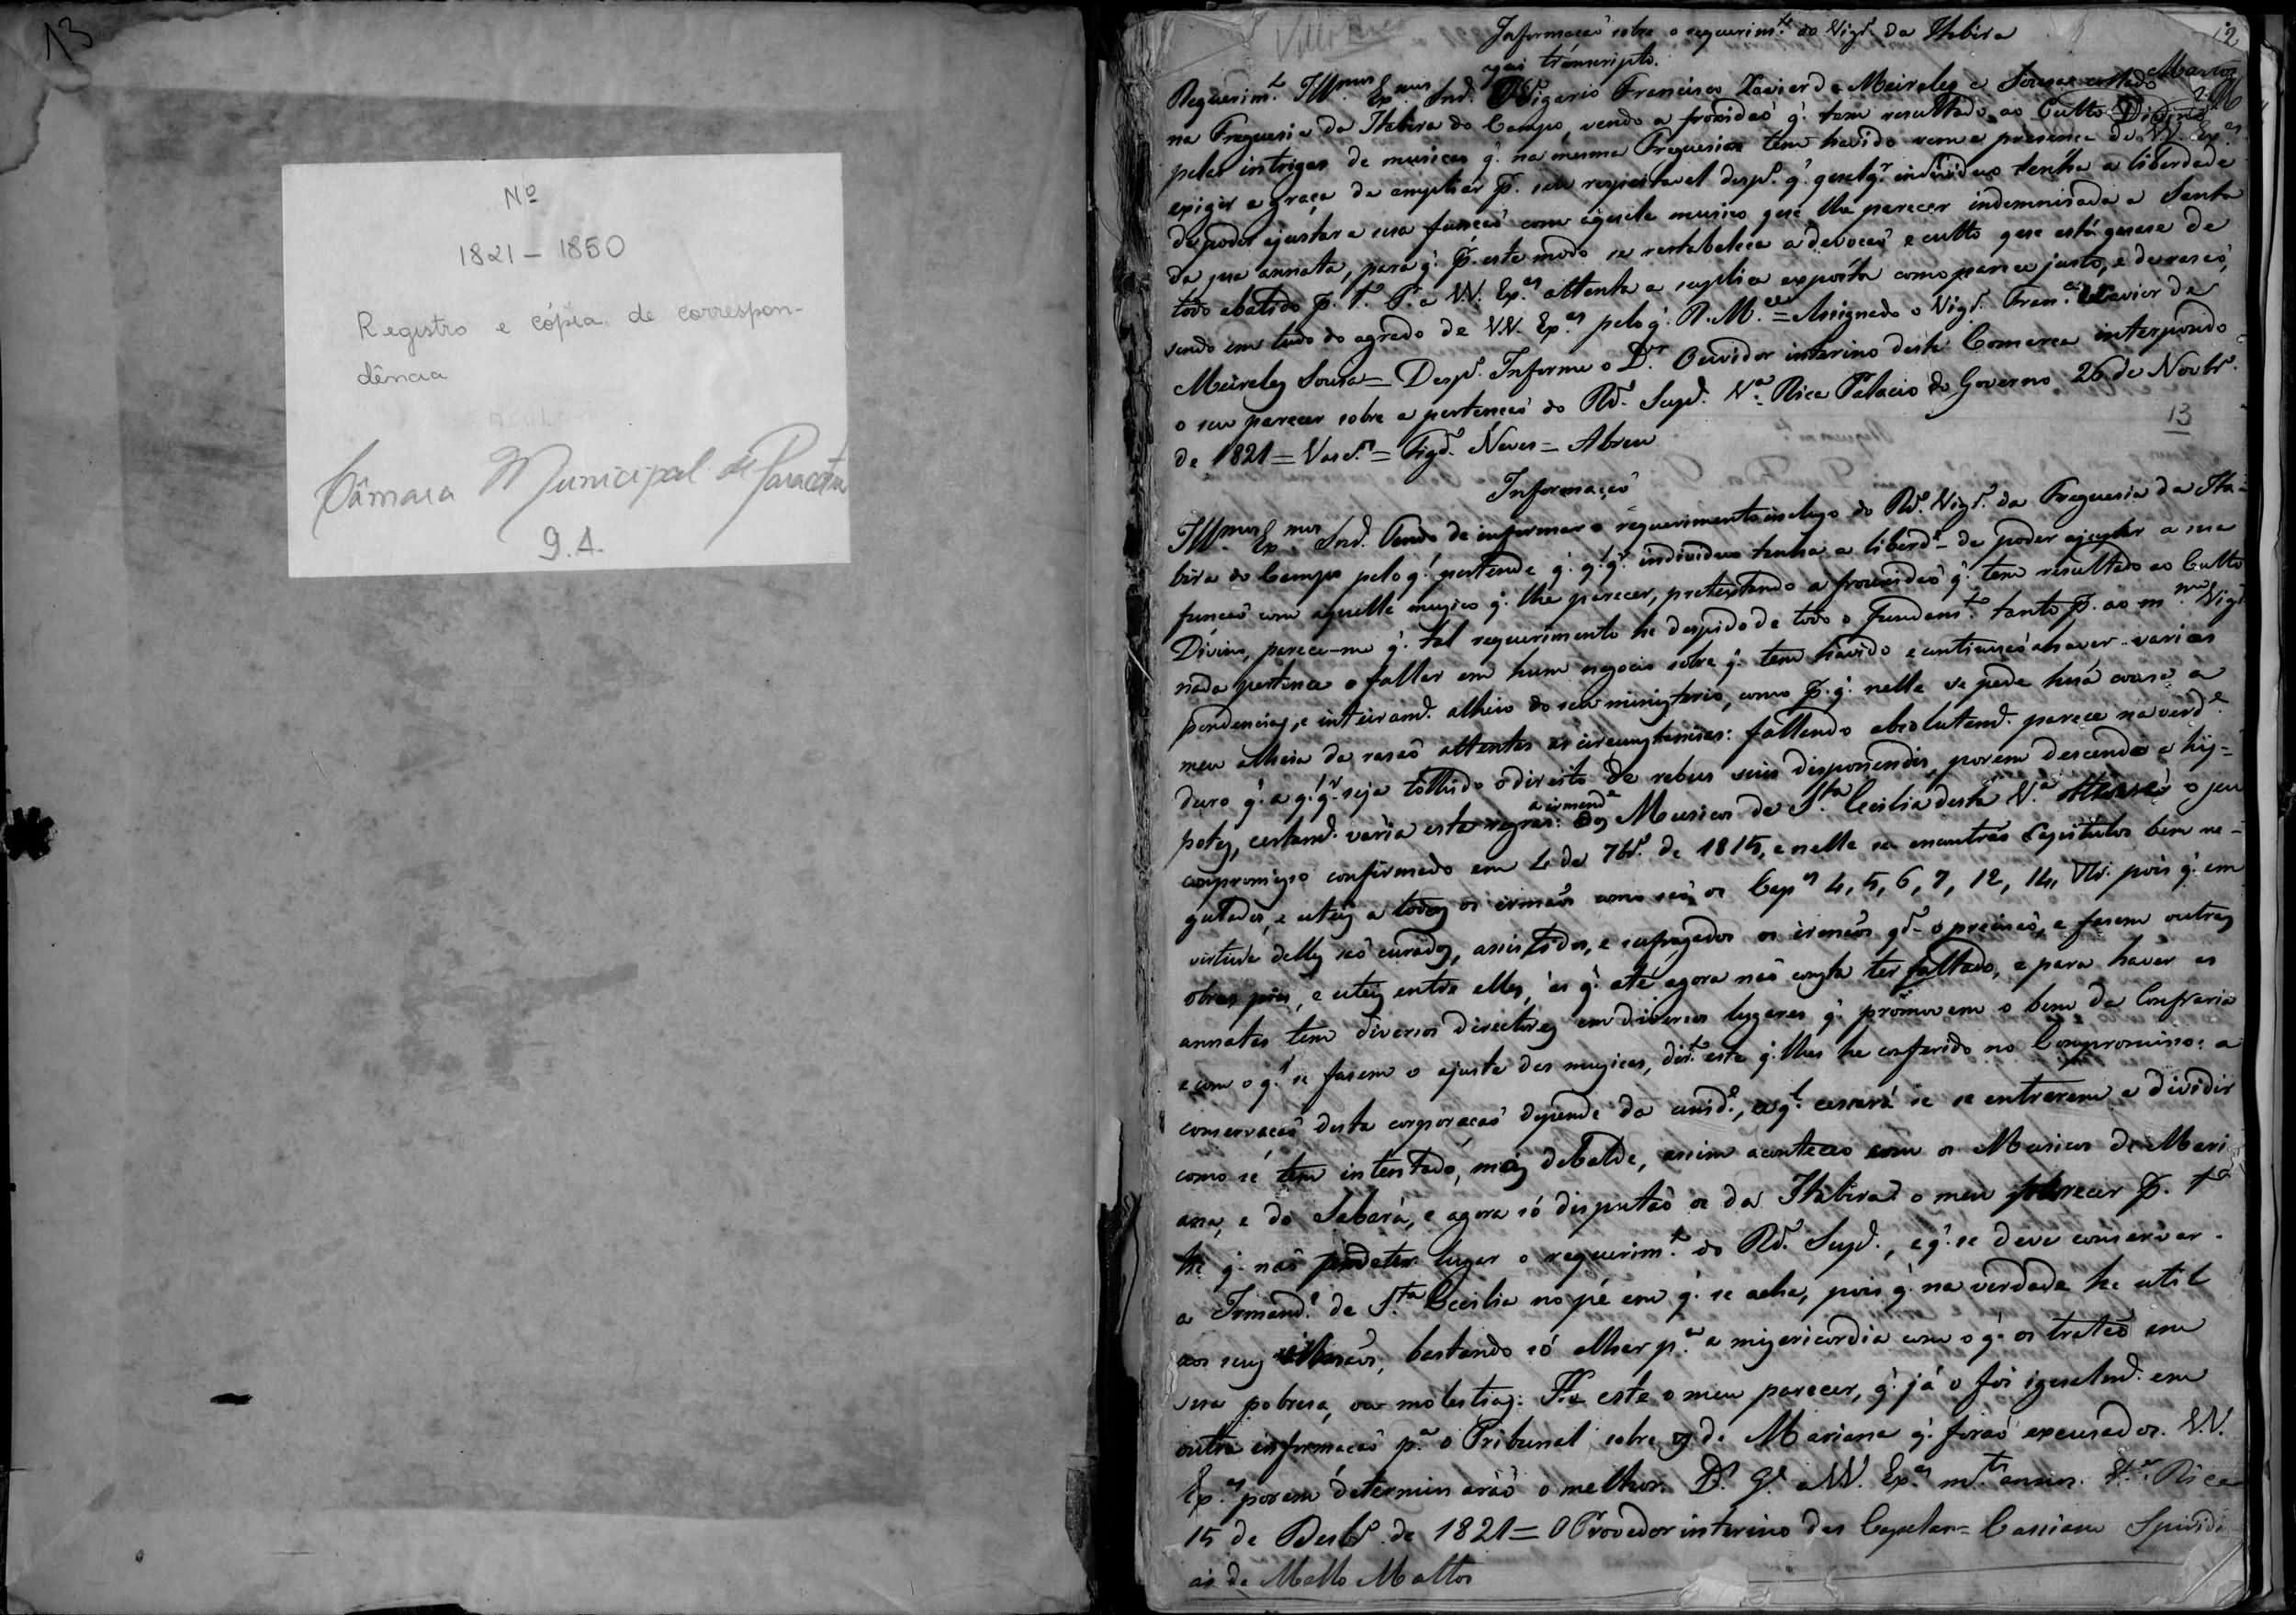 13
Nº
1821 – 1850
Registro e cópia de correspon-
dência
Câmara Municipal de Paracatu
9.1.
12
Informação sobre o requerim.to do Vigr.o da Itabira
aqui transcripto.
Requerim.to Ill.mos Ex.mos Snr.s O Vigario Francisco Xavier de Meireles e Sousa
na Freguesia da Itabira do Campo, vendo a frouxidaõ q. tem resultado ao Culto Divino
pelas intrigas de musicas q. na mesma Freguesia tem havido vem a presença de VV. Ex.as
exigir a graça de ampliar p. seu respeitavel desp.o q. qualq.r individuo tenha a liberdade
de poder ajustar a sua funcaõ com aquele musico que lhe parecer indemnisada a Santa
da sua annata, para q. p. este modo se restabeleça a devoçaõ e culto que está quase de
todo abatido p. t.o P. a VV. Ex.as attenta a suplica exposta como parece justo, e de rasaõ,
sendo em tudo do agrado de VV. Ex.as pelo q. R. M.ce = Assignado o Vigr.o Fran.co Xavier de
Meireles Sousa = Desp.o Informe o D.r Ouvidor interino desta Comarca interpondo
o seu parecer sobre a pertencaõ do Rd.o Supd.e V.a Rica Palacio do Governo 26 de Novbr.o
de 1821 = Vasc.os = Figd.o Neves = Abreu
13
Informaçaõ
Ill.mos Ex.mos Snr.s Tendo de informar o requerimento incluso do Rd.o Vigr.o da Freguesia da Ita-
bira do Campo pelo q. pertende q. q.q.r individuo tenha a liberd.e de poder ajustar a sua
funcaõ com aquelle musico q. lhe parecer, pretextando a frouxidaõ q. tem resultado ao Culto
Divino, parece-me q. tal requerimento he despido de todo o fundam.to tanto p. ao m.mo Vigr.o
nada pertence o fallar em hum negocio sobre q. tem havido e continuaõ a haver varias
pendencias, e inteiram.e alheio do seu ministerio, como p. q. nelle se pede huã cousa a
meu alheia da rasaõ attentas as circunstancias: fallando absolutam.e parece na verd.e
duro q. a q.q.r seja tolhido o direito de rebus suis disponendis, porem descendo a hip-
potes, certam.e varia esta regra: a irmand.e dos Musicos de S.ta Cecilia desta V.a o seu
compromisso confirmado em 4 de 7br.o de 1815, e nelle se encontraõ Capitulos bem re-
gulados, e uteis a todos os irmaõs como saõ os Cap.os 4, 5, 6, 7, 12, 14, pois q. em
virtude delles saõ curados, assistidos, e sufragados os irmaõs qd.o o precisaõ, e fasem outras
obras pias, e uteis entre elles, as q. até agora naõ consta ter faltado, e para haver as
annatas tem diversos directores em diversos lugares q. promovem o bem da Confraria
e com o q. se fasem o ajuste das musicas, dir.to este q. lhes he conferido no Compromisso: a
conservaçaõ desta corporaçaõ depende da unid.e, a q.l cessará se se entrarem a dividir
como se tem intentado, mas debalde, assim aconteceo com os Musicos de Mari-
ana, e do Sabará, e agora só disputaõ os da Itabira: o meu parecer p. t.o
he q. naõ pode ter lugar o requerim.to do Rd.o Supd.e, e q. se deve conservar
a Irmand.e de S.ta Cecilia no pé em q. se acha, pois q. na verdade he util
aos seus irmaõs, bastando só olhar p.a a misericordia com o q. os trataõ em
sua pobresa, ou molestias: He este o meu parecer, q. já o foi igualm.e em
outra informaçaõ p.a o Tribunal sobre os de Mariana q. foraõ excusados. VV.
Ex.as porem determinaraõ o melhor. D.s G.e a VV. Ex.as m.tos annos. V.a Rica
15 de Desbr.o de 1821 = O Provedor interino das Capelas = Cassiano Spiridi
aõ de Mello Mattos